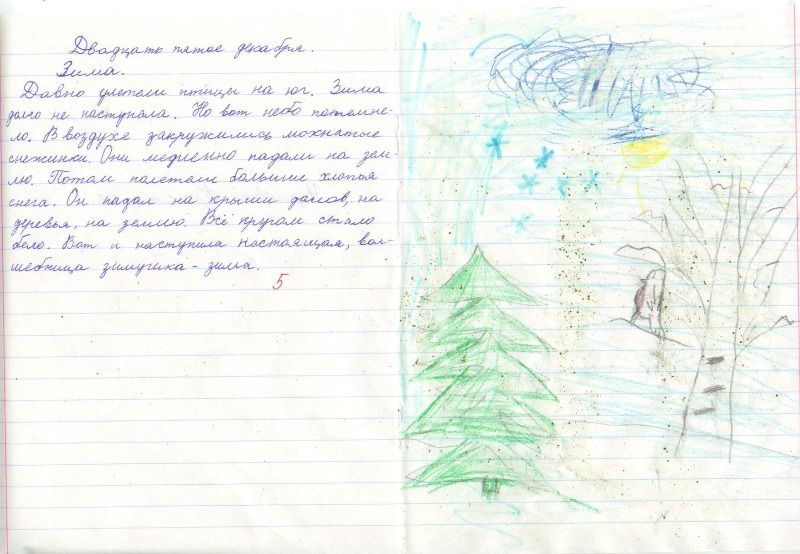 Двадцато пятое декабря.
Зима.
Давно улетели птицы на юг. Зима
долго не наступала. Но вот небо потемне-
ло. В воздухе закружились мохнатые
снежинки. Они медленно падали на зем-
лю. Потом полетели большие хлопья
снега. Он падал на крыши домов, на
деревья, на землю. Всё кругом стало
бело. Вот и наступила настоящая, вол-
шебница зимушка - зима.
5